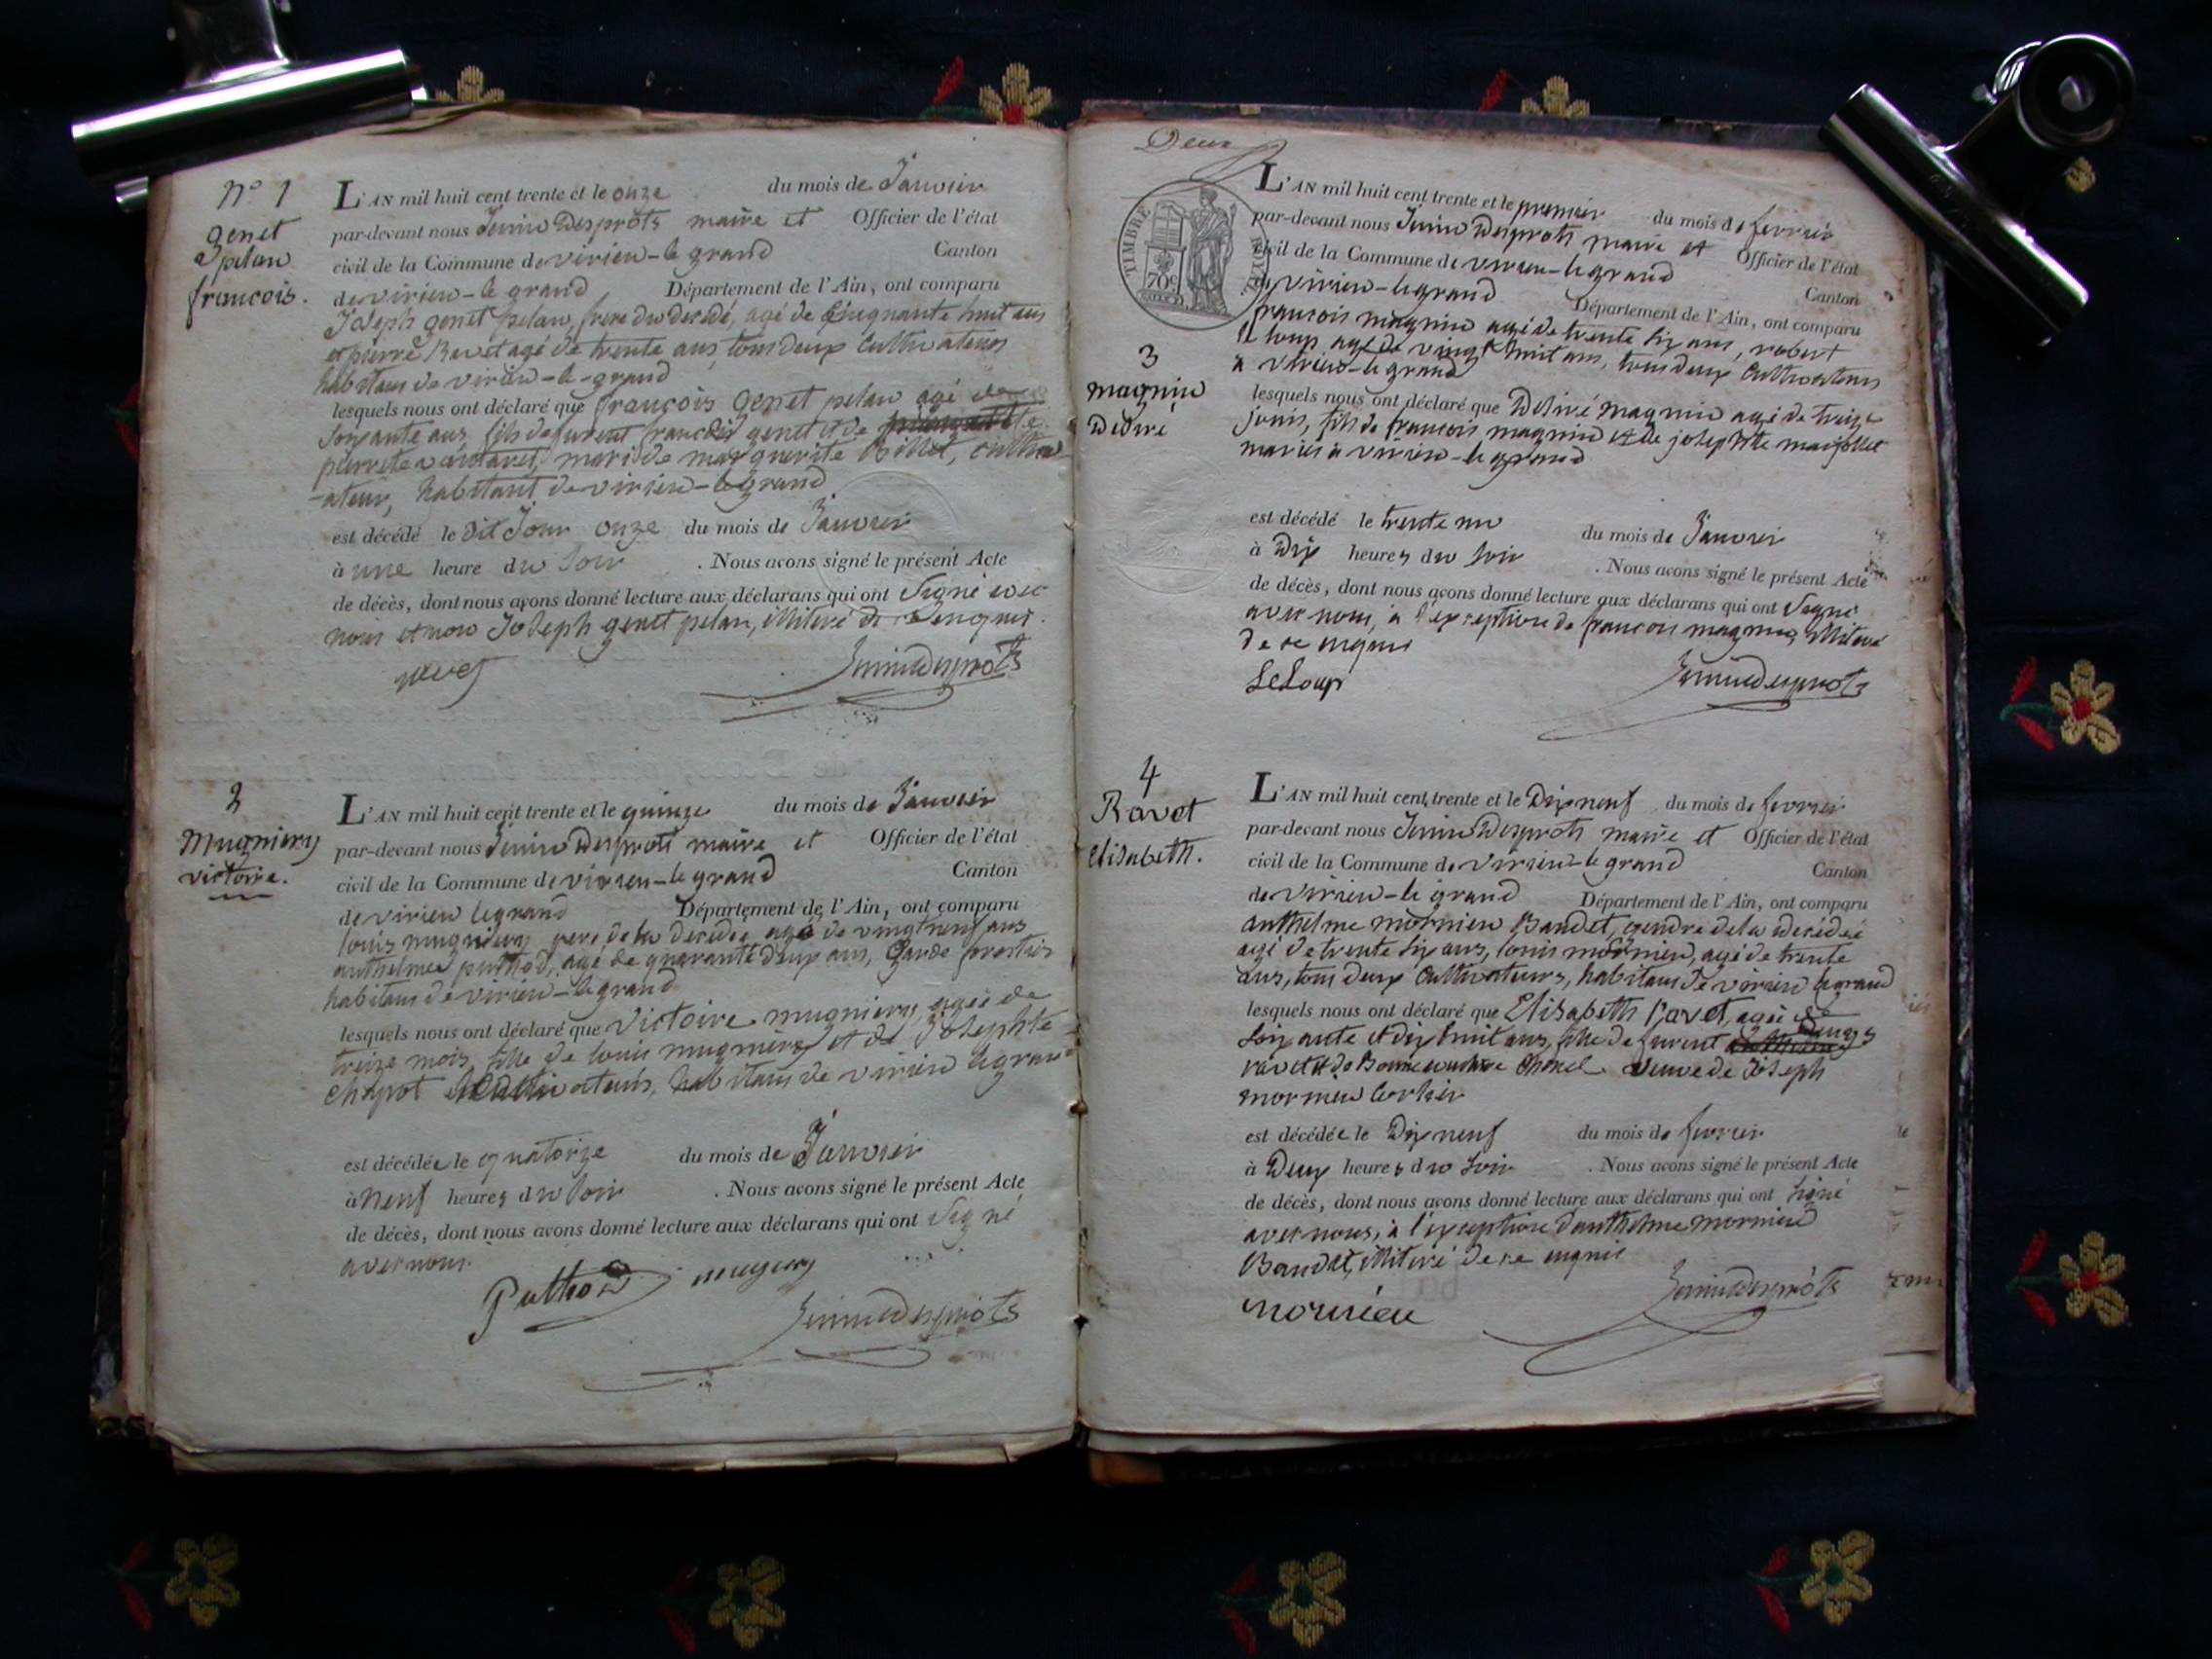 N° 1
genet
pelan
françois.
L'AN mil huit cent trente et le onze du mois de Janvier
par-devant nous Jenin Desprots maire et Officier de l'état
civil de la Commune de virieu-le grand Canton
de virieu-le grand Département de l'Ain, ont comparu
Joseph genet pelan, frere du decedé, agé de cinquante huit ans
et pierre Ravet agé de trente ans tous deux Cultivateurs
habitans de virieu-le-grand
lesquels nous ont déclaré que françois Genet pelan agé de
soixante ans fils de furent francois genet et de
pierrete vantaret, mari de marguerite Billet, cultiv-
-ateur, habitant de virieu-legrand
est décédé le dit Jour onze du mois de Janvier
à une heure du soir . Nous avons signé le présent Acte
de décès, dont nous avons donné lecture aux déclarans qui ont Signé avec
nous et non Joseph genet pelan, illiteré de ce enquis.
ravet Jenindesprots
2
Mugniery
victoire.
L'AN mil huit cent trente et le quinze du mois de Janvier
par-devant nous Jenin Desprots maire et Officier de l'état
civil de la Commune de virieu-le grand Canton
de virieu legrand Département de l'Ain, ont comparu
louis mugniery pere de la decedée, agé de vingt neuf ans
anthelme puthod, agé de quarante deux ans, Garde forestier
habitans de virieu-le grand
lesquels nous ont déclaré que Victoire mugniery, agée de
treize mois, fille de louis mugniery et de Josephte
chapot cultivateurs, habitans de virieu legrand
est décédée le quatorze du mois de Janvier
à neuf heures du soir . Nous avons signé le présent Acte
de décès, dont nous avons donné lecture aux déclarans qui ont Signé
avec nous.
Puthod mugniery
Jenindesprots
Deux
TIMBRE ROYAL
70c
L'AN mil huit cent trente et le premier du mois de fevrier
par-devant nous Jenin Desprots maire et Officier de l'état
civil de la Commune de virieu-le grand Canton
de virieu-legrand Département de l'Ain, ont comparu
francois magnin agé de trente six ans, robert
le loup agé de vingt huit ans, tous deux Cultivateurs
à virieu-le grand
3
magnin
Desiré
lesquels nous ont déclaré que Desiré magnin agé de treize
jours, fils de francois magnin et de josephte maijollet
mariés à virieu-le grand
est décédé le trente un du mois de Janvier
à Dix heures du soir . Nous avons signé le présent Acte
de décès, dont nous avons donné lecture aux déclarans qui ont Signé
avec nous, à l'exception de francois magnin, illiteré
de ce enquis
LeLoup Jenindesprots
4
Ravet
elisabeth.
L'AN mil huit cent trente et le Dix neuf du mois de fevrier
par-devant nous Jenin Desprots maire et Officier de l'état
civil de la Commune de virieu-le grand Canton
de virieu-le grand Département de l'Ain, ont comparu
anthelme mornieu Baudet, gendre de la decédée
agé de trente six ans, louis mornieu, agé de trente
ans, tous deux Cultivateurs, habitans de virieu legrand
lesquels nous ont déclaré que Elisabeth Ravet, agée de
soixante et dix huit ans, fille de furent
ravet et de Bonne chenel veuve de Joseph
mornieu Corlier
est décédée le Dix neuf du mois de fevrier
à Deux heures du soir . Nous avons signé le présent Acte
de décès, dont nous avons donné lecture aux déclarans qui ont signé
avec nous, à l'exception d'anthelme mornieu
Baudet, illiteré de ce enquis
mornieu Jenindesprots